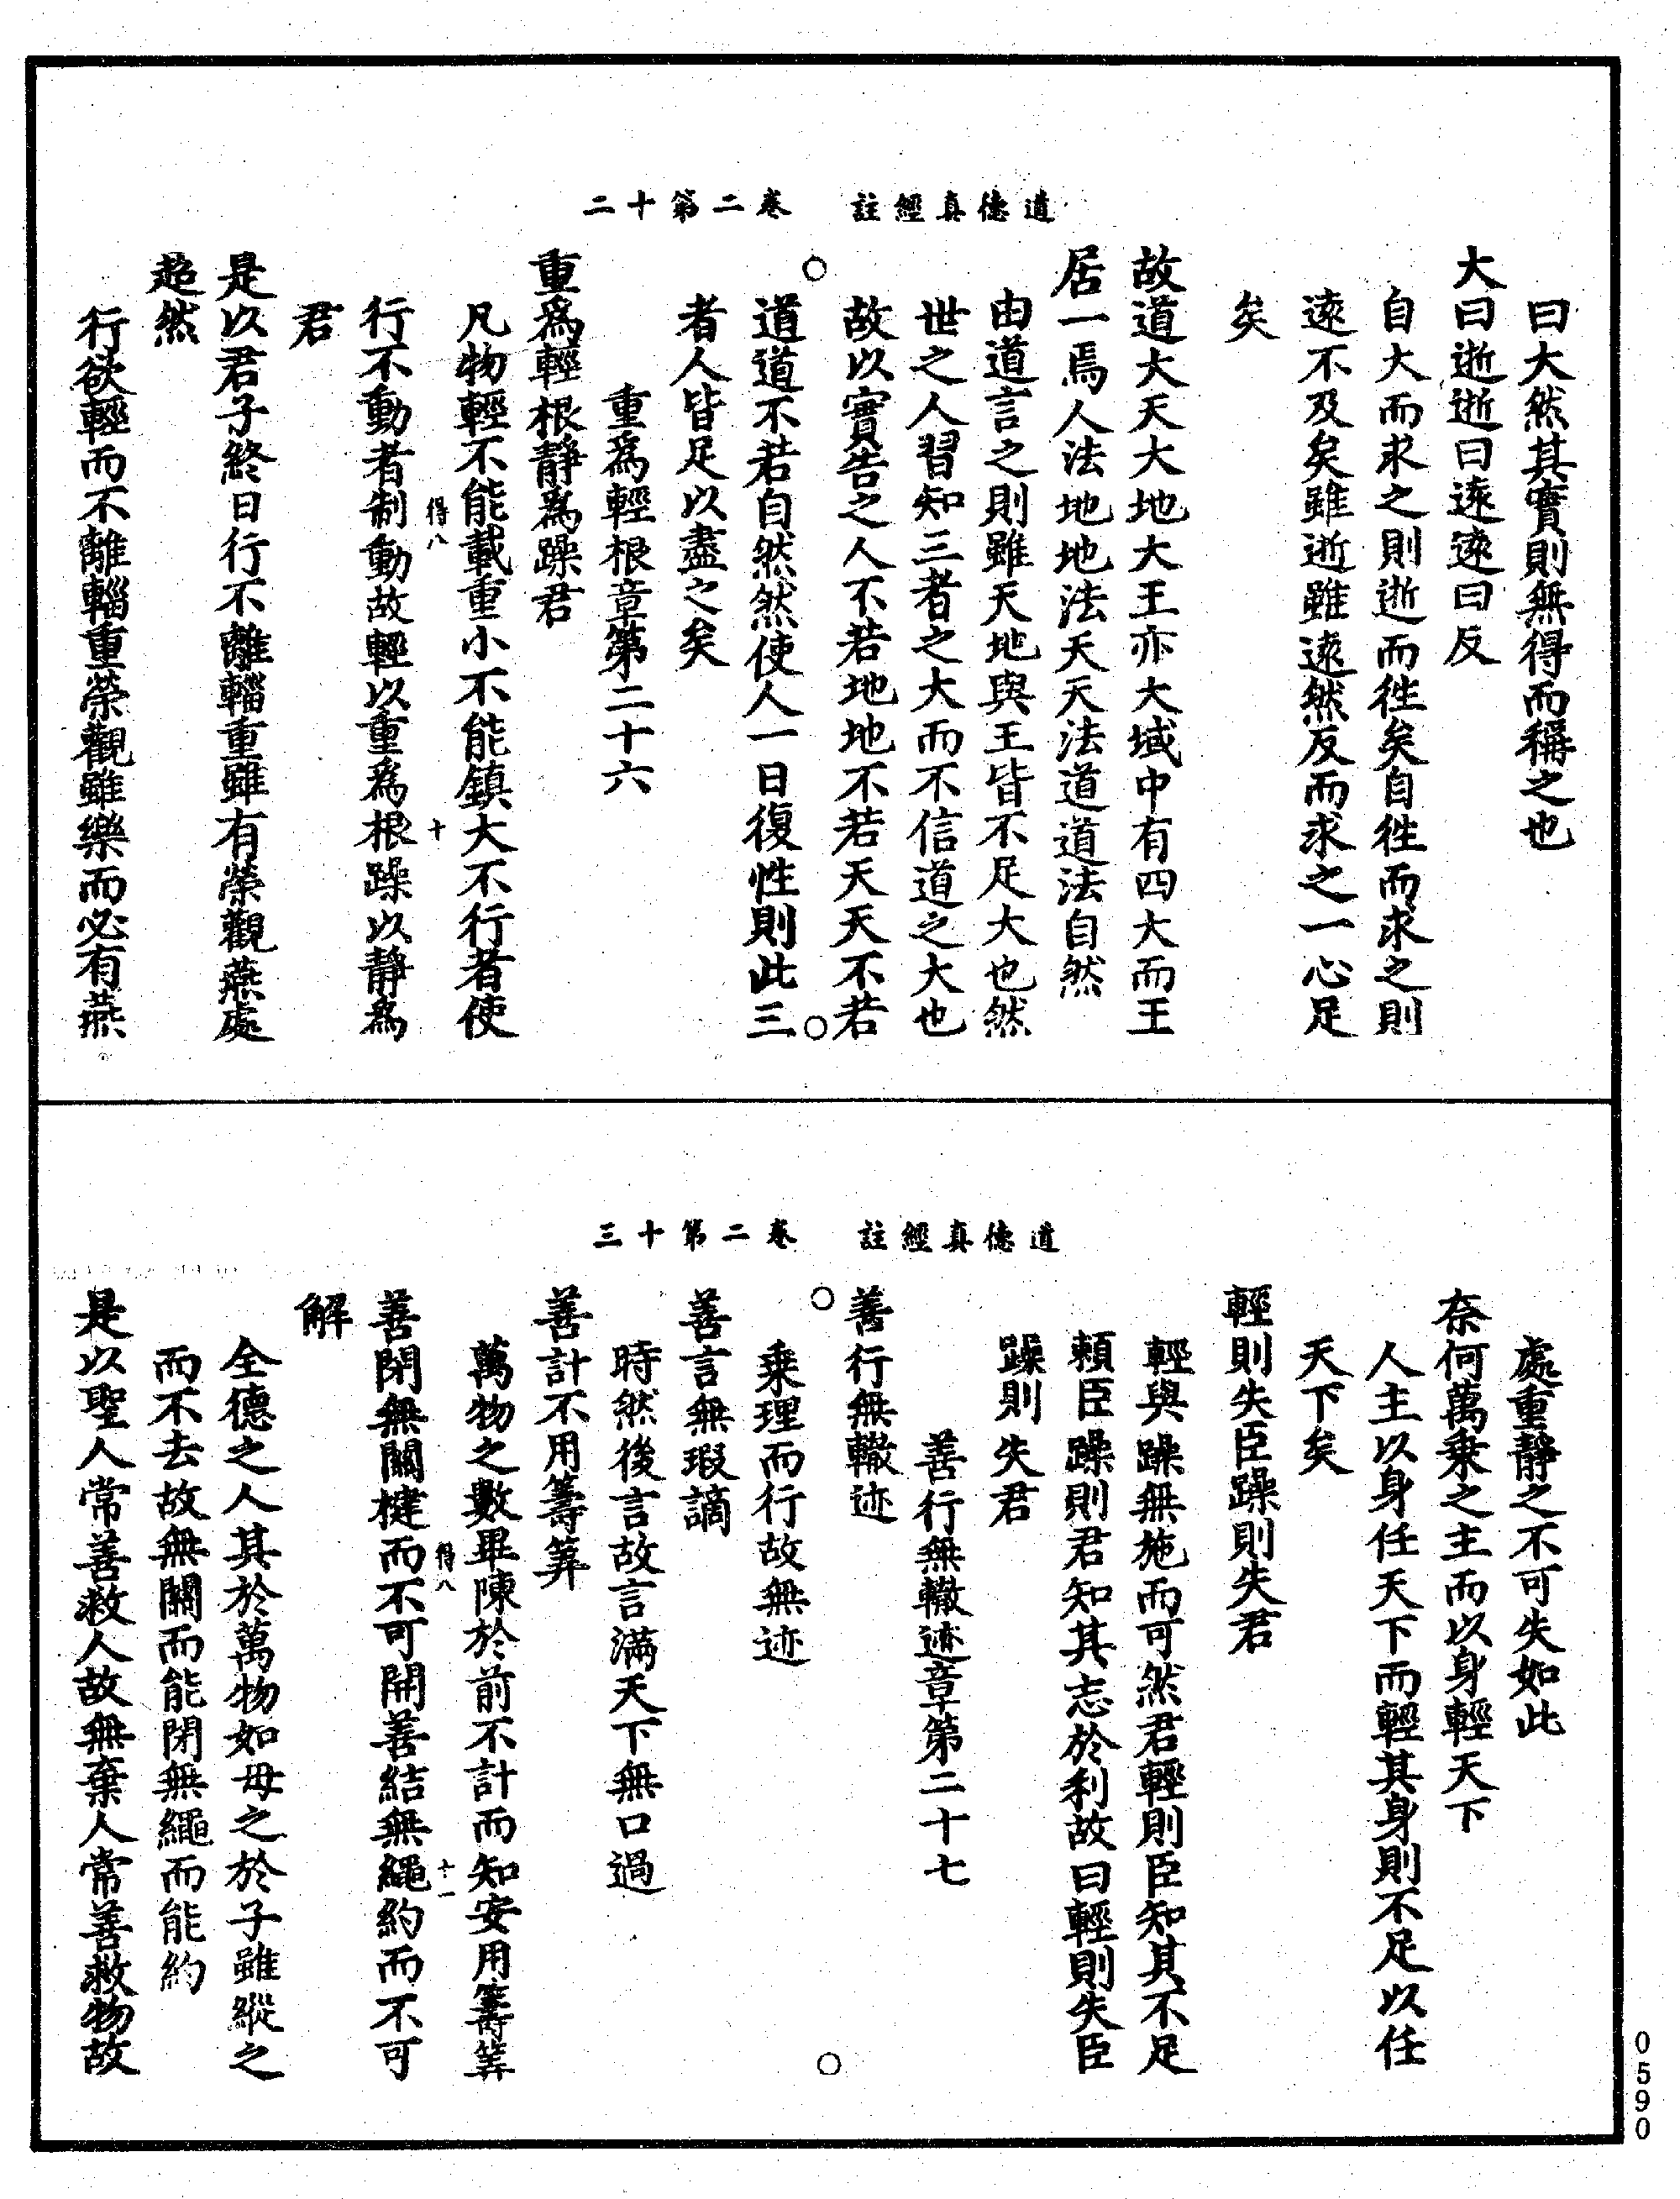 道德真經註　卷二第十二
曰大然其實則無得而稱之也
大曰逝逝曰遠遠曰反
自大而求之則逝而徃矣自徃而求之則
遠不及矣雖逝雖遠然反而求之一心足
矣
故道大天大地大王亦大域中有四大而王
居一焉人法地地法天天法道道法自然
由道言之則雖天地與王皆不足大也然
世之人習知三者之大而不信道之大也
故以實告之人不若地地不若天天不若
○　○
道道不若自然然使人一日復性則此三
者人皆足以盡之矣
重為輕根章第二十六
重為輕根靜為躁君
凡物輕不能載重小不能鎮大不行者使
得八　十
行不動者制動故輕以重為根躁以靜為
君
是以君子終日行不離輜重雖有榮觀燕處
超然
行欲輕而不離輜重榮觀雖樂而必有燕
道德真經註　卷二第十三
處重靜之不可失如此
奈何萬乗之主而以身輕天下
人主以身任天下而輕其身則不足以任
天下矣
輕則失臣躁則失君
輕與躁無施而可然君輕則臣知其不足
賴臣躁則君知其志於利故曰輕則失臣
躁則失君
善行無轍迹章第二十七
善行無轍迹
○　○
乗理而行故無迹
善言無瑕讁
時然後言故言滿天下無口過
善計不用籌筭
萬物之數畢陳於前不計而知安用籌筭
得八　十一
善閉無關楗而不可開善結無繩約而不可
解
全德之人其於萬物如母之於子雖縱之
而不去故無關而能閉無繩而能約
是以聖人常善救人故無棄人常善救物故
0590